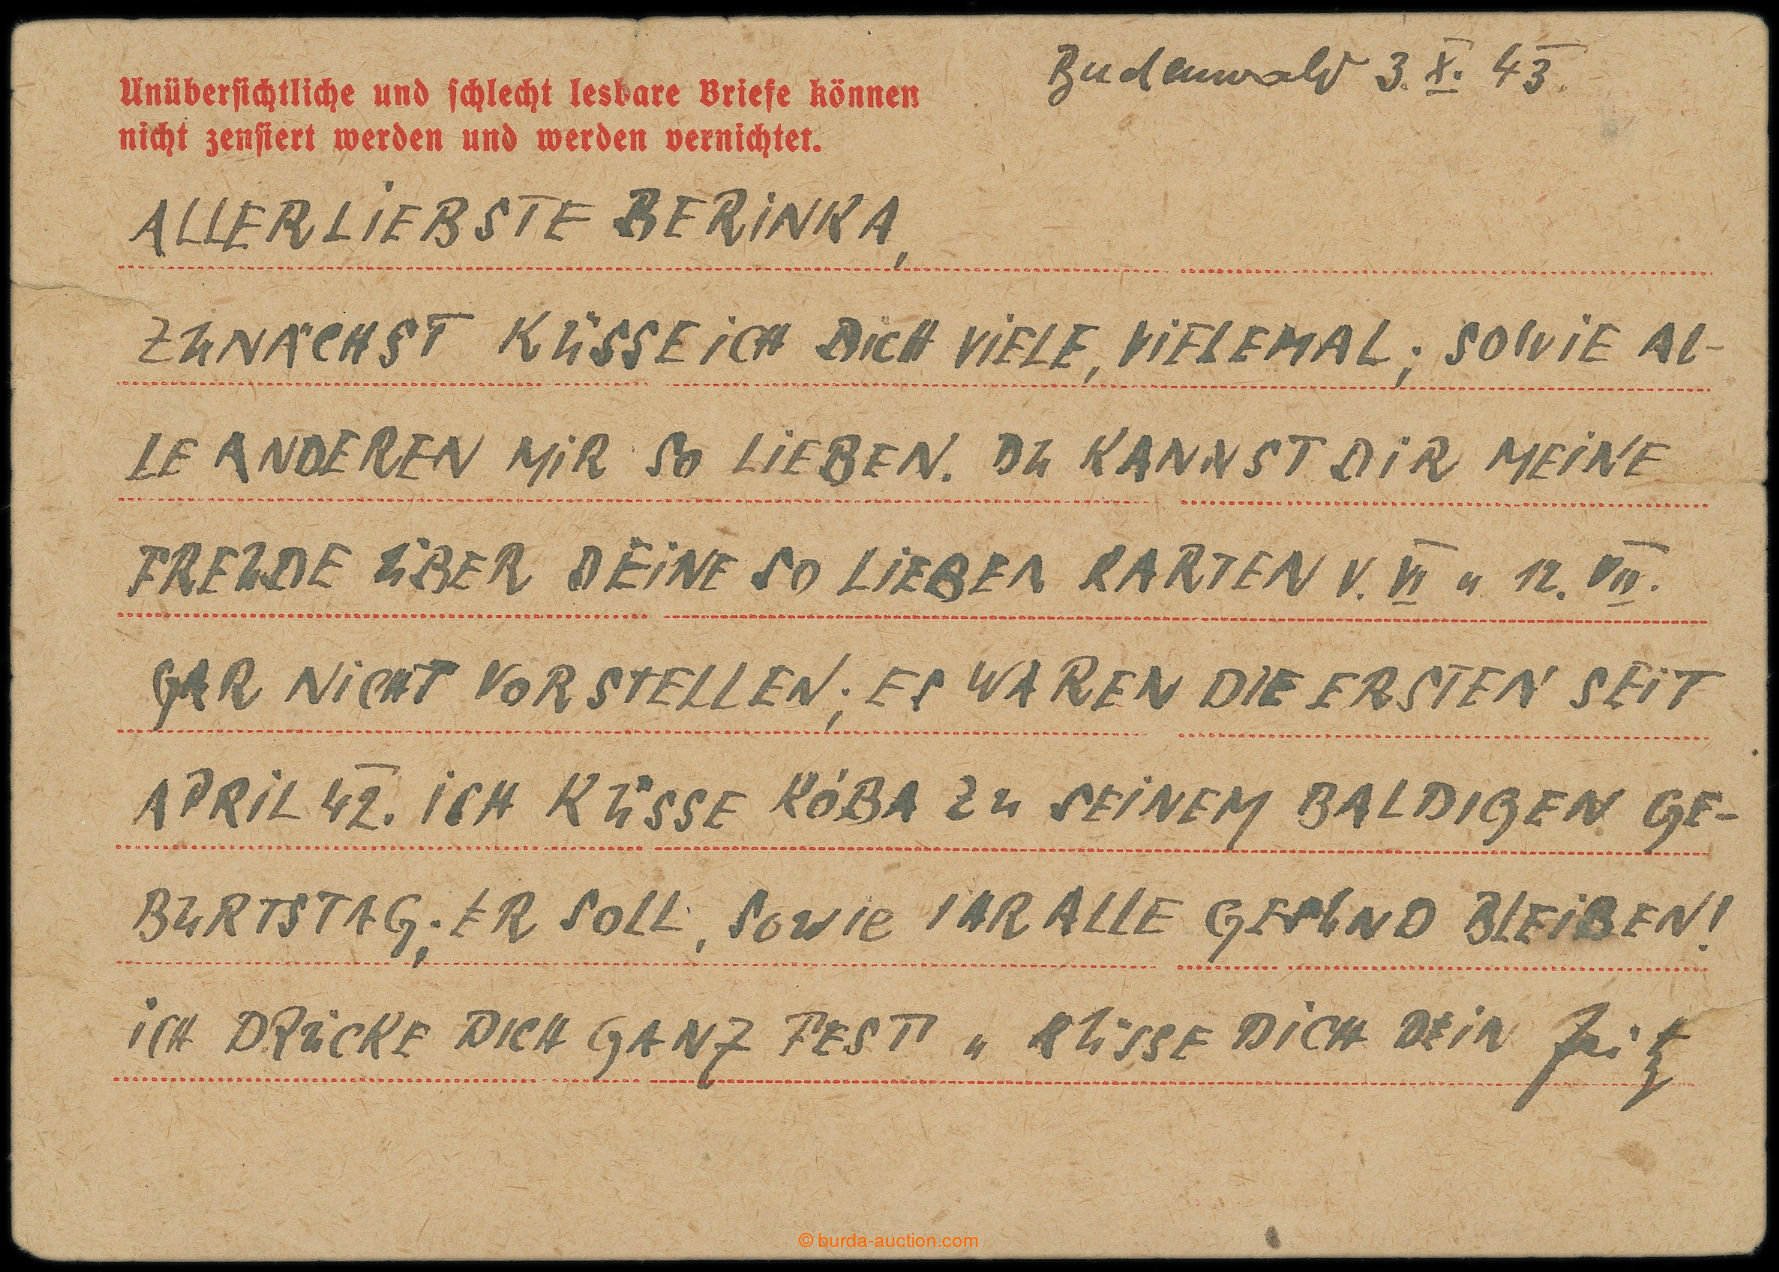 Budenwald 3. X. 43.
Unübersichtliche und schlecht lesbare Briefe können
nicht zensiert werden und werden vernichtet.
ALLERLIEBSTE BERINKA,
ZUNÄCHST KÜSSE ICH DICH VIELE, VIELEMAL; SOWIE AL-
LE ANDEREN MIR SO LIEBEN. DU KANNST DIR MEINE
FREUDE ÜBER DEINE SO LIEBEN KARTEN V. VI u 12. VII.
GAR NICHT VORSTELLEN; ES WAREN DIE ERSTEN SEIT
APRIL 42. ICH KÜSSE KÓBA ZU SEINEM BALDIGEN GE-
BURTSTAG; ER SOLL, SOWIE IHR ALLE GESUND BLEIBEN!
ICH DRÜCKE DICH GANZ FEST u KÜSSE DICH DEIN Fritz
© burda-auction.com